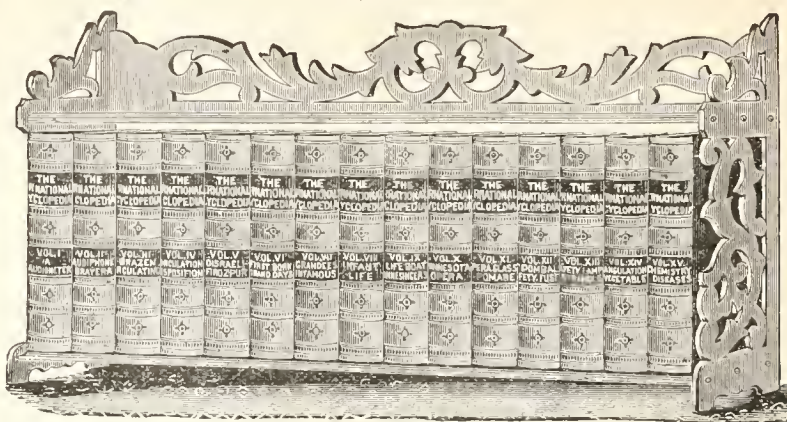 THE
RNATIONAL
YCLOPEDIA
VOL.I
A
AUDIOMETER
THE
RNATIONAL
CLOPEDIA
VOL.II
AUDIPHONE
BRAYERA
THE
RNATIONAL
CLOPEDIA
VOL.III
BRAZEN
RCULATING
THE
RNATIONAL
CLOPEDIA
VOL.IV
RCULATION
SPOSITION
THE
RNATIONAL
YCLOPEDIA
VOL.V
DISRAELI
FIROZPUR
THE
RNATIONAL
YCLOPEDIA
VOL.VI
FIRST BORN
THE
RNATIONAL
YCLOPEDIA
VOL.VII
GRANDEE
INFAMOUS
THE
RNATIONAL
YCLOPEDIA
VOL.VIII
INFANT
LIFE
THE
RNATIONAL
YCLOPEDIA
VOL.IX
LIFE BOAT
THE
RNATIONAL
YCLOPEDIA
VOL.X
MINNESOTA
OPERA
THE
RNATIONAL
YCLOPEDIA
VOL.XI
PERA GLASS
POMADE
THE
RNATIONAL
YCLOPEDIA
VOL.XII
POMBAL
FETY.FUSE
THE
RNATIONAL
YCLOPEDIA
VOL.XIII
FETY LAMP
THE
RNATIONAL
YCLOPEDIA
VOL.XIV
ANGULATION
VEGETABLE
THE
RNATIONAL
YCLOPEDIA
VOL.XV
CHEMISTRY
DISEASES